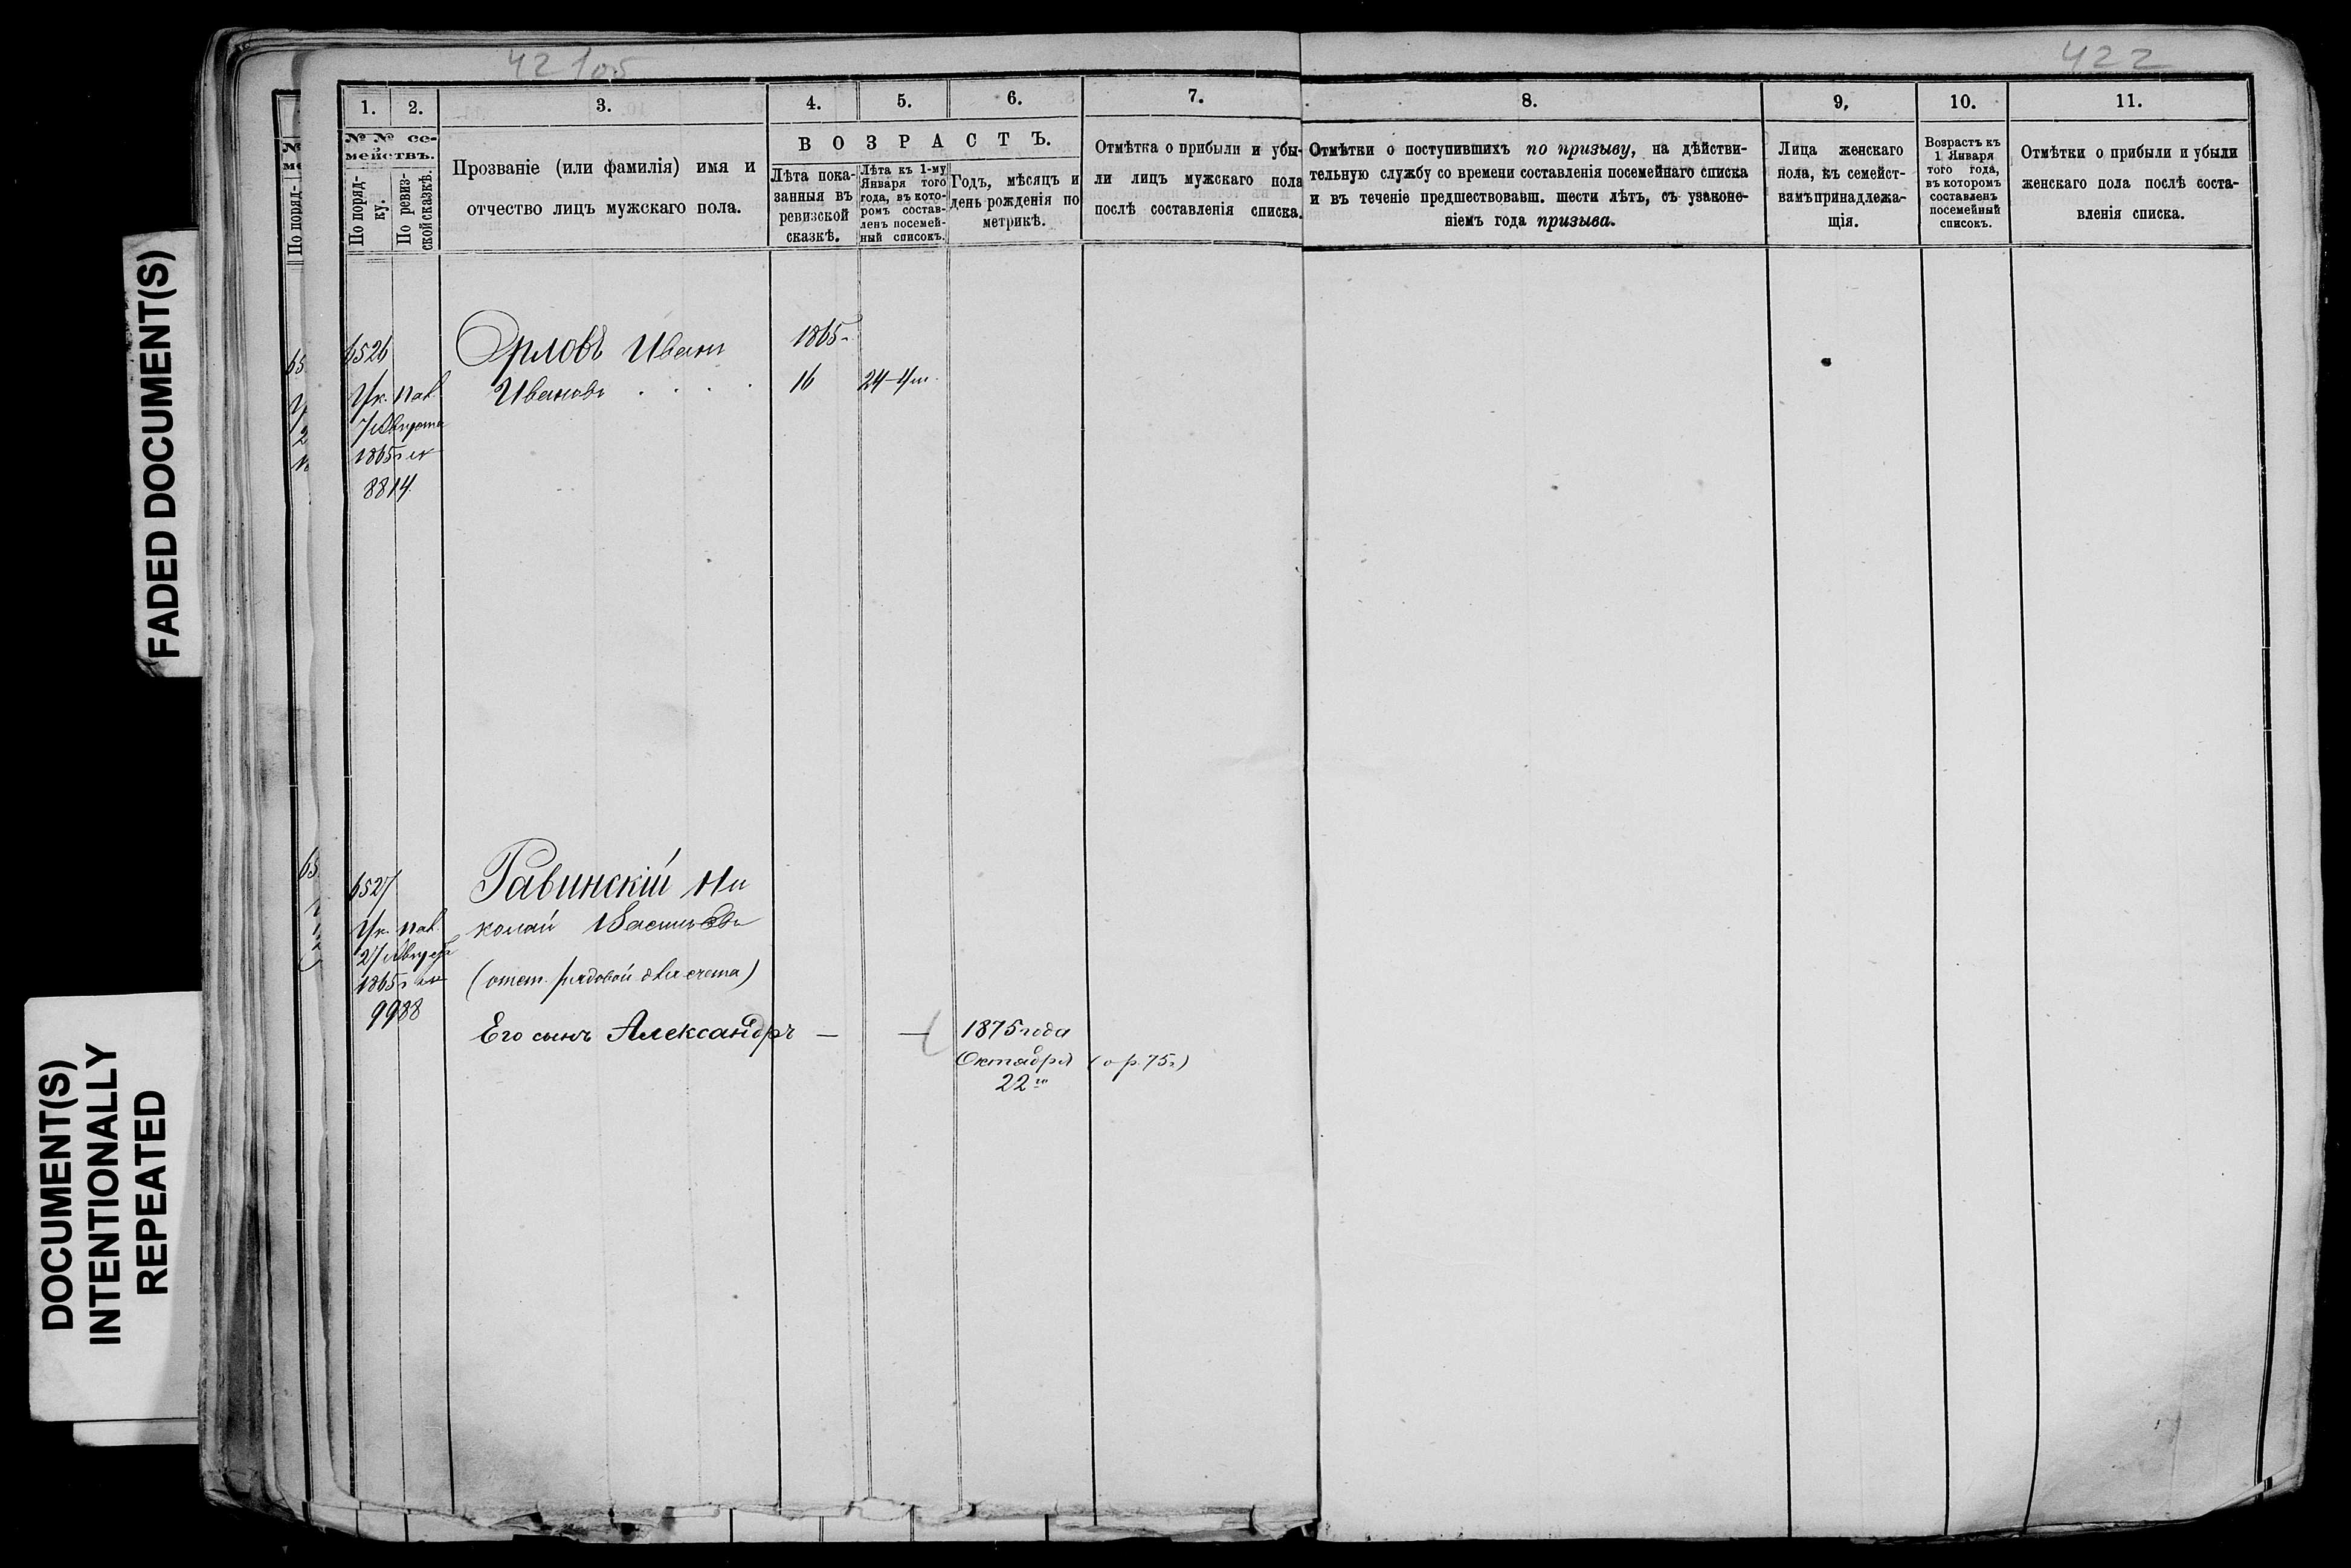 42 105
422
FADED DOCUMENT(S)
DOCUMENT(S)
INTENTIONALLY
REPEATED
1.
2.
3.
4.
5.
6.
7.
8.
9.
10.
11.
№ № се-
мействъ.
По поряд-
ку.
По ревиз-
ской сказкѣ.
Прозваніе (или фамилія) имя и
отчество лицъ мужскаго пола.
ВОЗРАСТЪ.
Лѣта пока-
занныя въ
ревизской
сказкѣ.
Лѣта къ 1-му
Января того
года, въ кото-
ромъ состав-
ленъ посемей-
ный списокъ.
Годъ, мѣсяцъ и
день рожденія по
метрикѣ.
Отмѣтка о прибыли и убы-
ли лицъ мужскаго пола
послѣ составленія списка.
Отмѣтки о поступившихъ по призыву, на дѣйстви-
тельную службу со времени составленія посемейнаго списка
и въ теченіе предшествовавш. шести лѣтъ, съ узаконе-
ніемъ года призыва.
Лица женскаго
пола, къ семейст-
вамъ принадлежа-
щія.
Возрастъ къ
1 Января
того года,
въ которомъ
составленъ
посемейный
списокъ.
Отмѣтки о прибыли и убыли
женскаго пола послѣ соста-
вленія списка.
По поряд-
6526
Орловъ Иванъ
1865г
Ук. Пал.
Ивановъ
16
24
7 Августа
1865г
8814.
6527
Равинскій Ни
Ук. Пал.
колай
27
1865г
(отст. рядовой
9988
Его сынъ Александръ — —
1875 года
Октября (о р. 75г)
22го